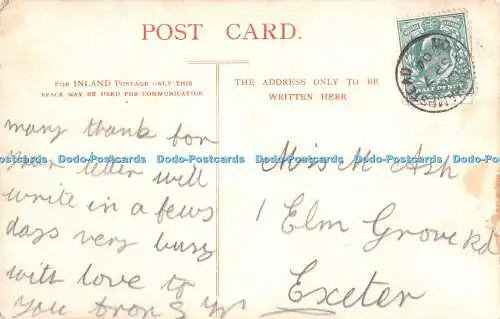 POST CARD.
FOR INLAND POSTAGE ONLY THIS
SPACE MAY BE USED FOR COMMUNICATION
THE ADDRESS ONLY TO BE
WRITTEN HERE
HALFPENNY
many thank for
your letter will
write in a few
days very busy
with love to
you
Miss M Ash
1 Elm Grove Rd
Exeter
Dodo-Postcards Dodo-Postcards Dodo-Postcards Dodo-Postcards Dodo-Postcards